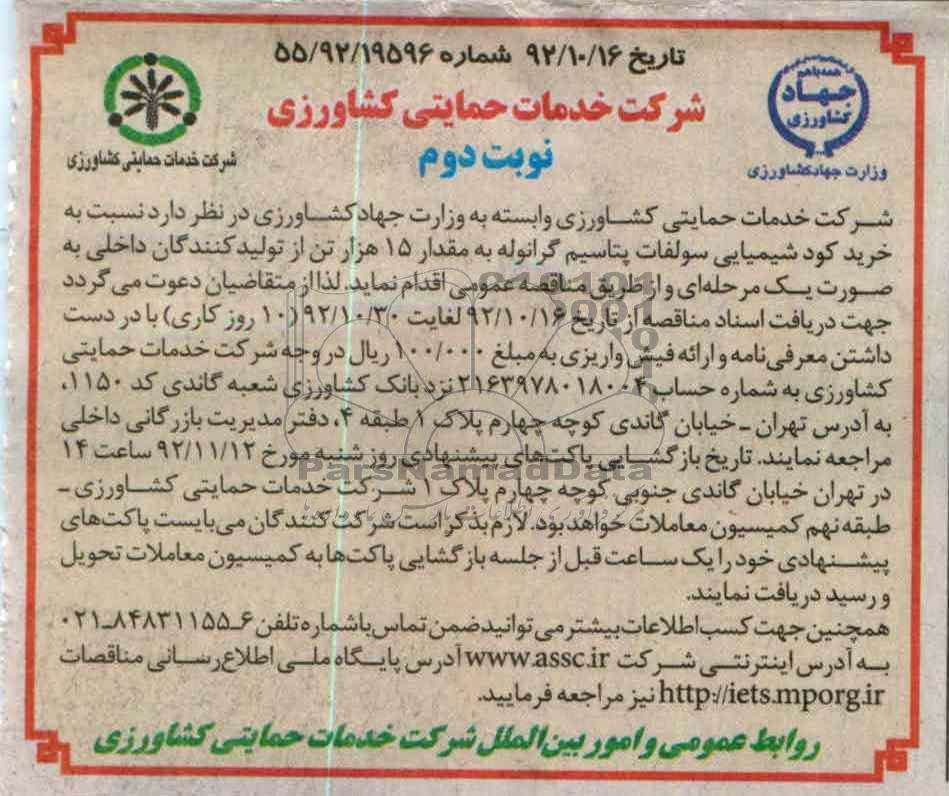 تاریخ ۹۲/۱۰/۱۶ شماره ۵۵/۹۲/۱۹۵۹۶
همه با هم
جهاد
کشاورزی
وزارت جهاد کشاورزی
شرکت خدمات حمایتی کشاورزی
شرکت خدمات حمایتی کشاورزی
نوبت دوم
شرکت خدمات حمایتی کشاورزی وابسته به وزارت جهاد کشاورزی در نظر دارد نسبت به
خرید کود شیمیایی سولفات پتاسیم گرانوله به مقدار ۱۵ هزار تن از تولیدکنندگان داخلی به
صورت یک مرحله‌ای و از طریق مناقصه عمومی اقدام نماید. لذا از متقاضیان دعوت می گردد
جهت دریافت اسناد مناقصه از تاریخ ۹۲/۱۰/۱۶ لغایت ۹۲/۱۰/۳۰ (۱۰ روز کاری) با در دست
داشتن معرفی‌نامه و ارائه فیش واریزی به مبلغ ۱۰۰/۰۰۰ ریال در وجه شرکت خدمات حمایتی
کشاورزی به شماره حساب ۲۱۶۳۹۷۸۰۱۸۰۰۴ نزد بانک کشاورزی شعبه گاندی کد ۱۱۵۰،
به آدرس تهران - خیابان گاندی کوچه چهارم پلاک ۱ طبقه ۴، دفتر مدیریت بازرگانی داخلی
مراجعه نمایند. تاریخ بازگشایی پاکت‌های پیشنهادی روز شنبه مورخ ۹۲/۱۱/۱۲ ساعت ۱۴
در تهران خیابان گاندی جنوبی کوچه چهارم پلاک ۱ شرکت خدمات حمایتی کشاورزی -
طبقه نهم کمیسیون معاملات خواهد بود. لازم بذکر است شرکت کنندگان می‌بایست پاکت‌های
پیشنهادی خود را یک ساعت قبل از جلسه بازگشایی پاکت‌ها به کمیسیون معاملات تحویل
و رسید دریافت نمایند.
همچنین جهت کسب اطلاعات بیشتر می توانید ضمن تماس با شماره تلفن ۶-۸۴۸۳۱۱۵۵-۰۲۱
به آدرس اینترنتی شرکت www.assc.ir آدرس پایگاه ملی اطلاع رسانی مناقصات
http://iets.mporg.ir نیز مراجعه فرمایید.
روابط عمومی و امور بین‌الملل شرکت خدمات حمایتی کشاورزی
ParsNamadData